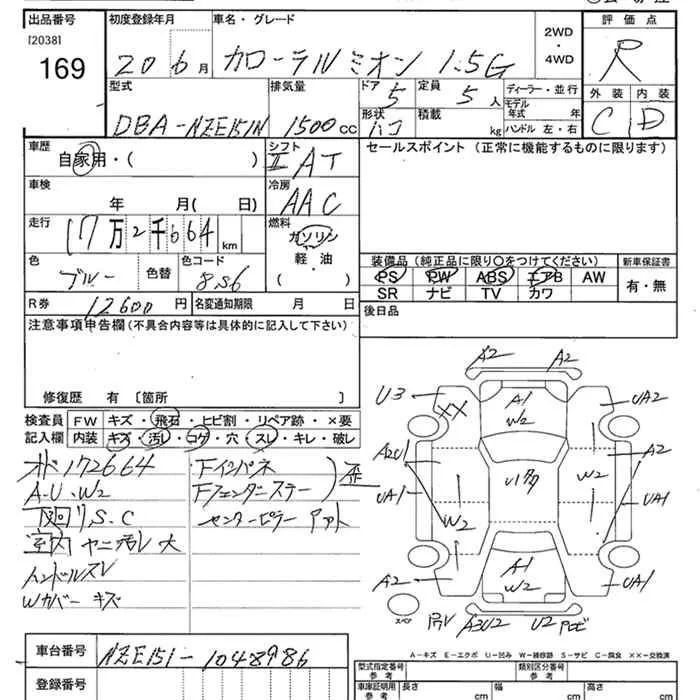 出品番号
[2038]
169
初度登録年月
20 6月
車名・グレード
カローラルミオン 1.5G
2WD
・
4WD
評価点
R
型式
DBA-NZE151N
排気量
1500cc
ドア
5
定員
5人
ディーラー・並行
モデル年式 年
外装
C
内装
D
形状
ハコ
積載
kg
ハンドル 左・右
車歴
自家用・( )
シフト
II AT
セールスポイント(正常に機能するものに限ります)
車検
年 月( 日)
冷房
AAC
走行
17万2千664km
燃料
ガソリン
軽・油
( )
色
ブルー
色替
色コード
8S6
装備品(純正品に限り○をつけてください)
新車保証書
PS PW ABS エアB AW
有・無
SR ナビ TV カワ
R券
12600円
名変通知期限 月 日
後日品
注意事項申告欄(不具合内容等は具体的に記入して下さい)
修復歴 有〔箇所 〕
検査員
記入欄
FW キズ・飛石・ヒビ割・リペア跡・×要
内装 キズ・汚レ・コゲ・穴・スレ・キレ・破レ
オド172664
A.U.W2
下廻りS.C
室内ヤニ汚レ大
ハンドルスレ
Wカバーキズ
Fインパネ
Fフェンダーステー
歪
センターピラーアト
A2 A2
U3
XX
A1
W2
UA2
A2U1
A2
UA1
W2
W2
UA1
A1
W2
A2
UA1
スペア
A3U2
U2
車台番号
NZE151-1048986
登録番号
A-キズ E-エクボ U-凹み W-補修跡 S-サビ C-腐食 XX-交換済
型式指定番号
参考
類別区分番号
参考
車庫証明用
参考
長さ cm
幅 cm
高さ cm